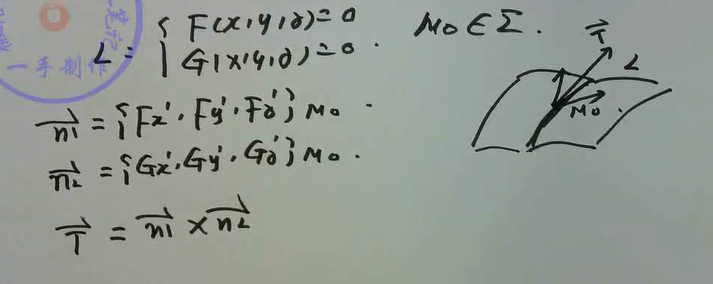 L = { F(x,y,z)=0
G(x,y,z)=0 .
M0 ∈ Σ.
n1 = {Fx', Fy', Fz'} M0 .
n2 = {Gx', Gy', Gz'} M0 .
T = n1 × n2
T
L
M0 .
一手制作